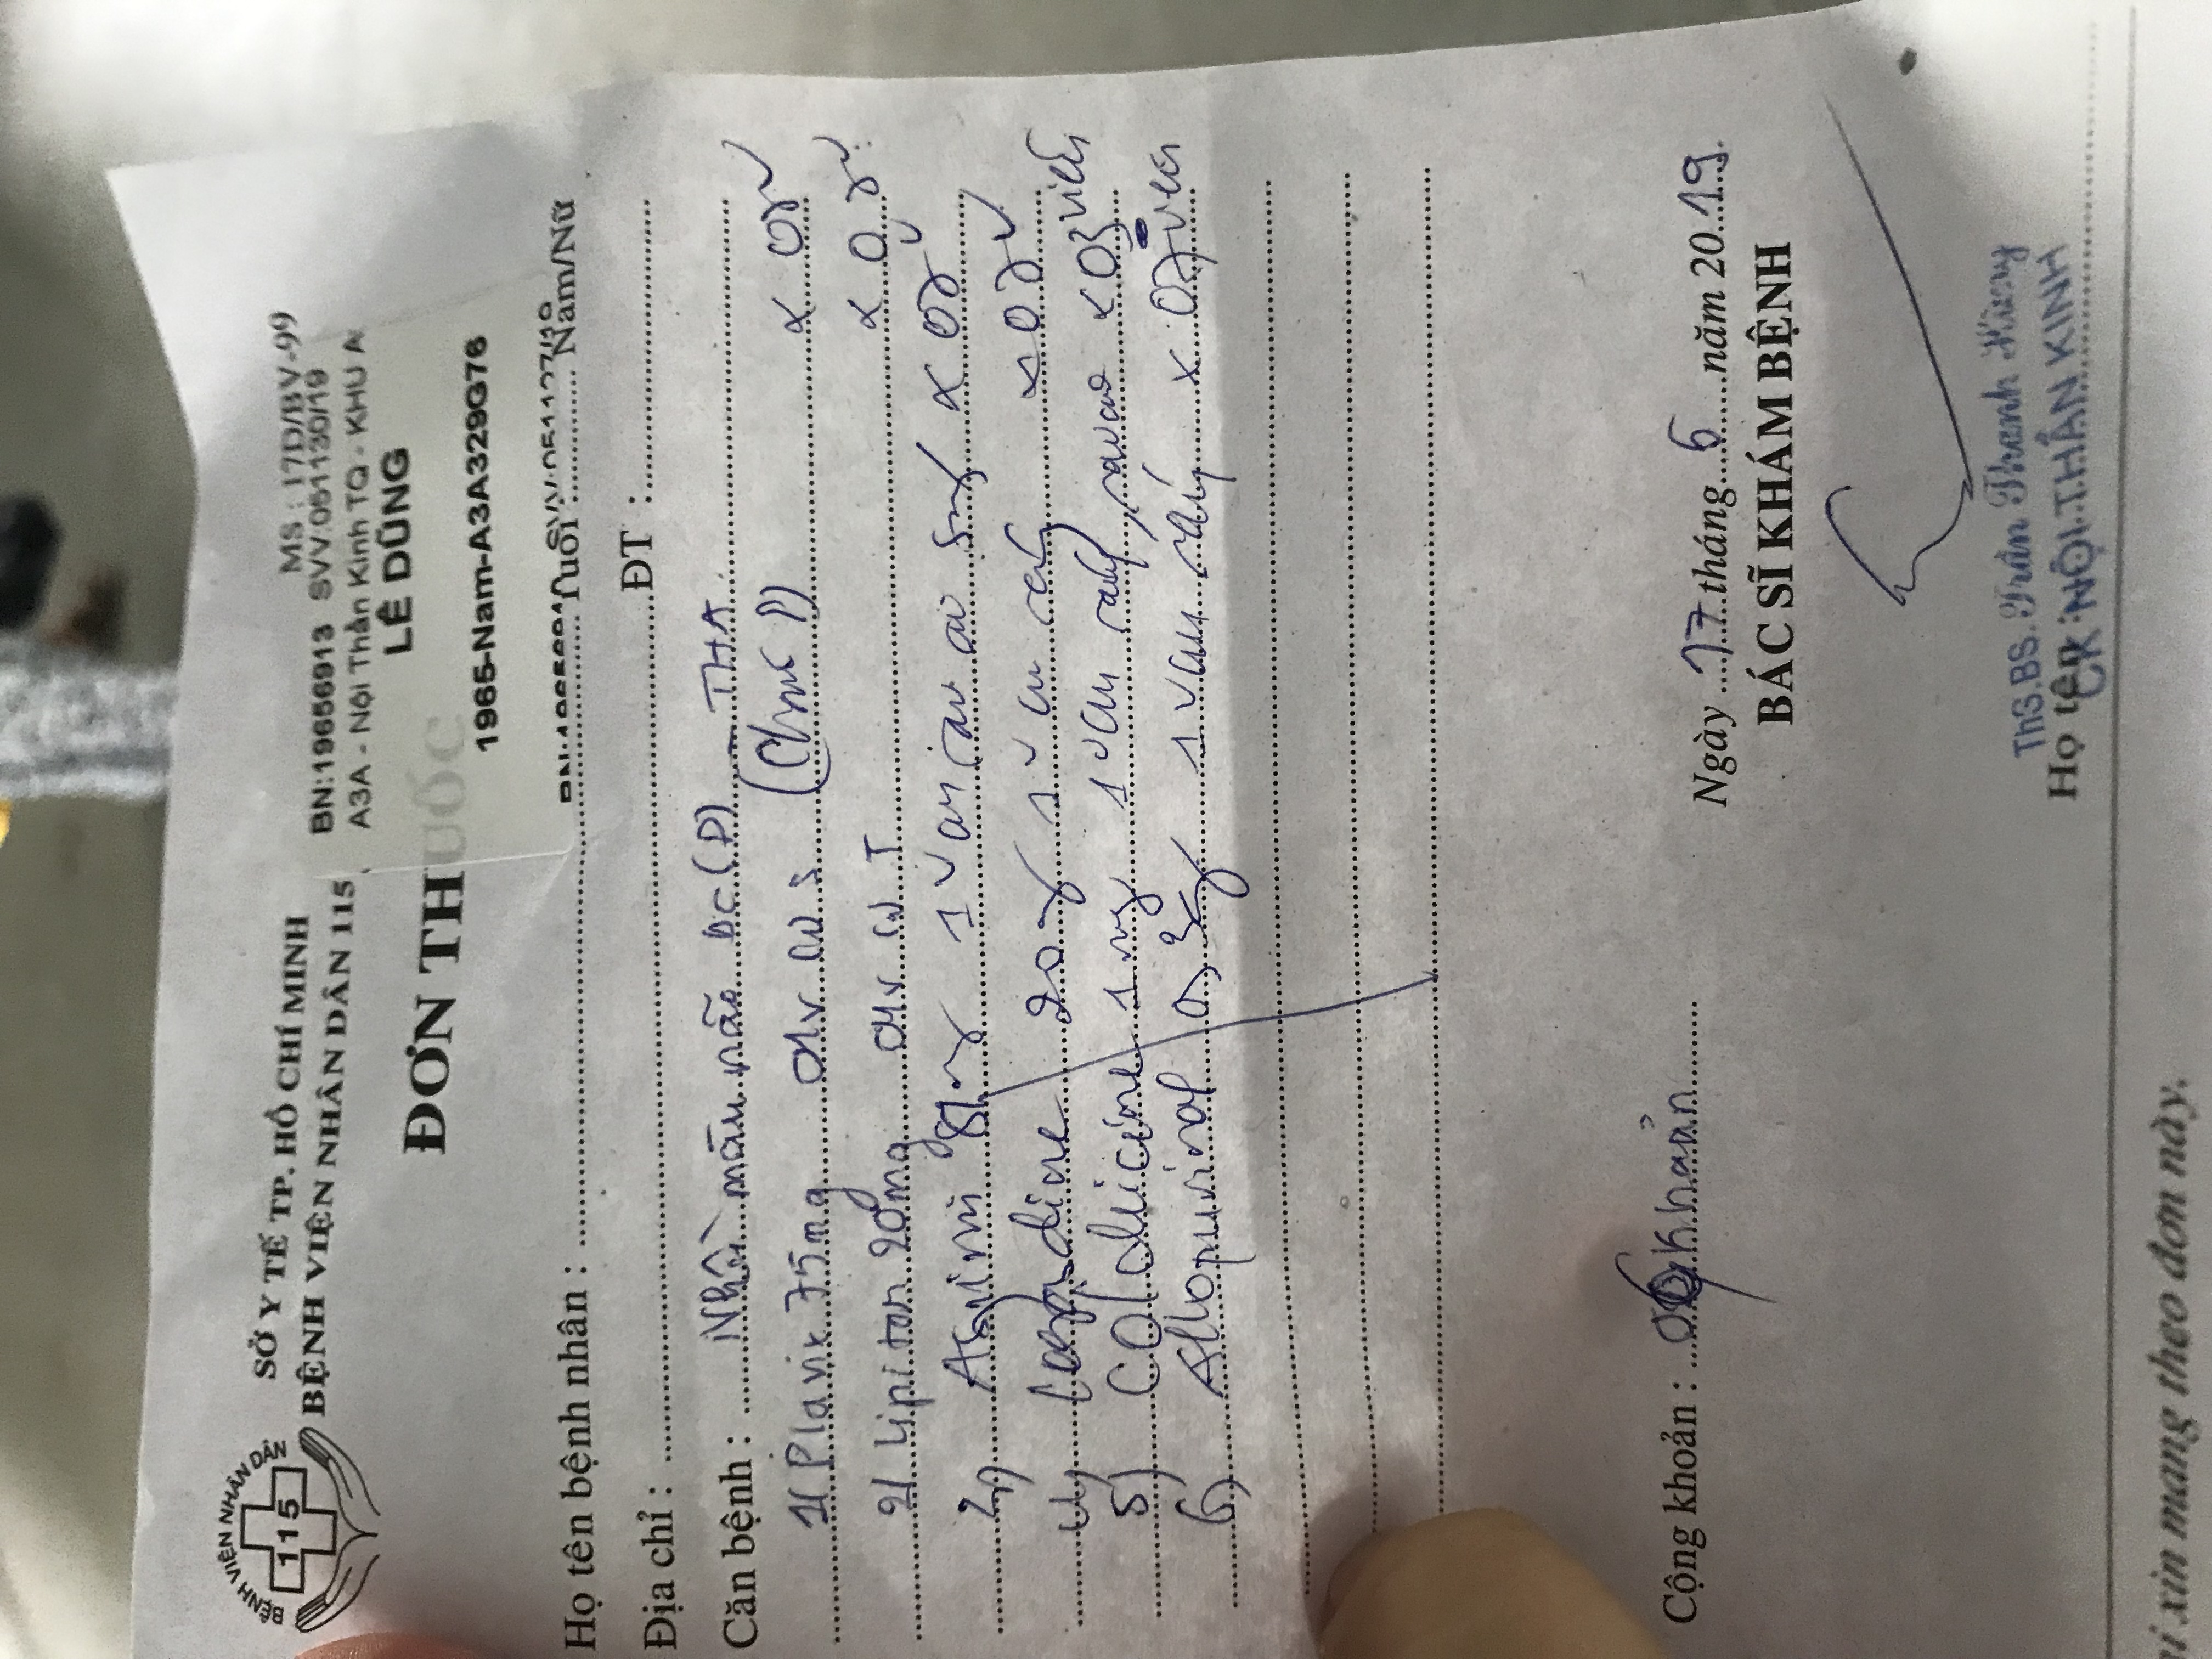 BỆNH VIỆN NHÂN DÂN
115
SỞ Y TẾ TP. HỒ CHÍ MINH
BỆNH VIỆN NHÂN DÂN 115
MS : 17D/BV-99
BN:19656913 SVV:051130/19
A3A - Nội Thần Kinh TQ - KHU A
LÊ DŨNG
1965-Nam-A3A329G76
ĐƠN THUỐC
Họ tên bệnh nhân : Tuổi : Nam/Nữ
Địa chỉ : ĐT :
Căn bệnh : Nhồi máu não (P) - THA
1/ Plavix 75mg 01v (P) x 07v
2/ Lipitor 20mg 01v x 07v
3) Aspirin 81mg 1v x 07v
4) 20mg 1v x 07v
5) Colchicine 1mg 1v x 03 viên
6) Allopurinol 0,3g 1v x 07 viên
Cộng khoản : 06 khoản
Ngày 17 tháng 6 năm 2019
BÁC SĨ KHÁM BỆNH
ThS.BS. Trần Thanh Hùng
Họ tên :
CK NỘI THẦN KINH
xin mang theo đơn này.